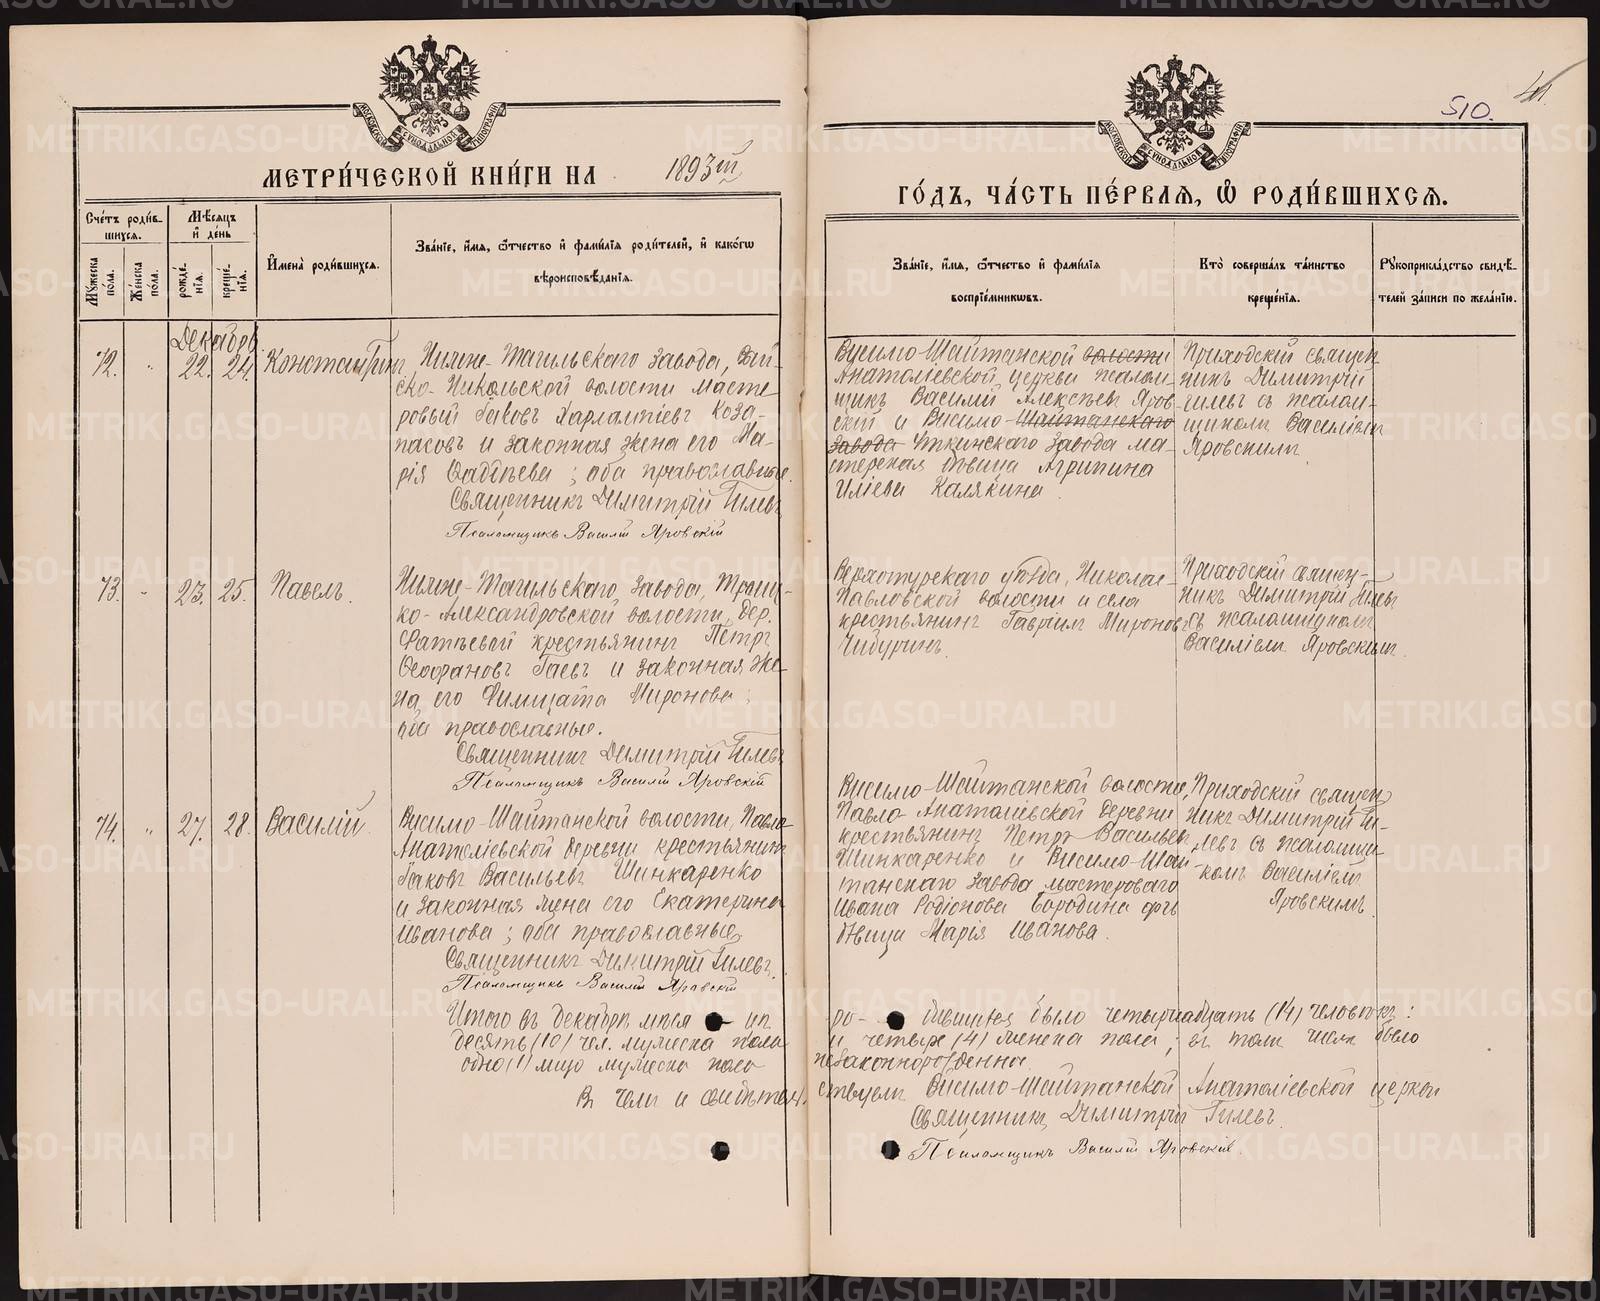 510.
МЕТРИ́ЧЕСКОЙ КНИ́ГИ НА 1893й
ГО́ДЪ, ЧА́СТЬ ПЕ́РВАЯ, Ѡ РОДИ́ВШИХСЯ.
Сче́тъ роди́вшихся.
Мѣ́сяцъ и҆ де́нь
Мꙋ́жеска по́ла.
Же́нска по́ла.
рожде́нїя.
креще́нїя.
И҆мена̀ роди́вшихся.
Зва́нїе, и҆́мя, ѻ҆́тчество и҆ фами́лїя роди́телей, и҆ како́гѡ
вѣроисповѣ́данїя.
Зва́нїе, и҆́мя, ѻ҆́тчество и҆ фами́лїя
воспрїе́мникѡвъ.
Кто̀ соверша́лъ та́инство
креще́нїя.
Рꙋкоприкла́дство свидѣ́-
телей за́писи по жела́нїю.
Декабрь
72. " 22. 24. Константинъ
Нижне-Тагильскаго завода, Вый-
ско-Никольской волости масте
ровый Іаковъ Харлампіевъ Коза-
пасовъ и законная жена его Ма-
рія Фаддѣева; оба православные.
Священникъ Димитрій Гилевъ
Псаломщикъ Василій Яровскій
Висимо-Шайтанской волости
Анатоліевской церкви псалом-
щикъ Василій Алексѣевъ Яров-
скій и Висимо-Шайтанскаго
завода Уткинскаго завода ма-
стерская дѣвица Агрипина
Иліева Калякина.
Приходскій священ
никъ Димитрій
Гилевъ съ псалом-
щикомъ Василіемъ
Яровскимъ
73. " 23. 25. Павелъ.
Нижне-Тагильскаго завода, Троиц-
ко-Александровской волости, дер.
крестьянинъ Петръ
Ѳеофановъ Гаевъ и законная же-
на его Филицата Миронова;
оба православные.
Священникъ Димитрій Гилевъ
Псаломщикъ Василій Яровскій
Верхотурскаго уѣзда, Николае-
Павловской волости и села
крестьянинъ Гавріилъ Мироновъ
Чибуринъ.
Приходскій священ-
никъ Димитрій Гилевъ
съ псаломщикомъ
Василіемъ Яровскимъ.
74. " 27. 28. Василій.
Висимо-Шайтанской волости, Павло-
Анатоліевской деревни крестьянинъ
Іаковъ Васильевъ Шинкаренко
и законная жена его Екатерина
Иванова; оба православные
Священникъ Димитрій Гилевъ.
Псаломщикъ Василій Яровскій
Висимо-Шайтанской волости,
Павло-Анатоліевской деревни
крестьянинъ Петръ Васильевъ
Шинкаренко и Висимо-Шай-
танскаго завода мастероваго
Ивана Родіонова Бородина дочь
дѣвица Марія Иванова.
Приходскій священ
никъ Димитрій Ги-
левъ съ псаломщи-
комъ Василіемъ
Яровскимъ.
Итого въ декабрѣ мѣсяцѣ ро- дившихся было четырнадцать (14) человѣкъ:
десять (10) чел. мужеска пола и четыре (4) женска пола; въ томъ числѣ было
одно (1) лицо мужеска пола незаконнорожденно.
В чемъ и свидѣтельствуемъ Висимо-Шайтанской Анатоліевской церкви
Священникъ Димитрій Гилевъ.
Псаломщикъ Василій Яровскій.
METRIKI.GASO-URAL.RU